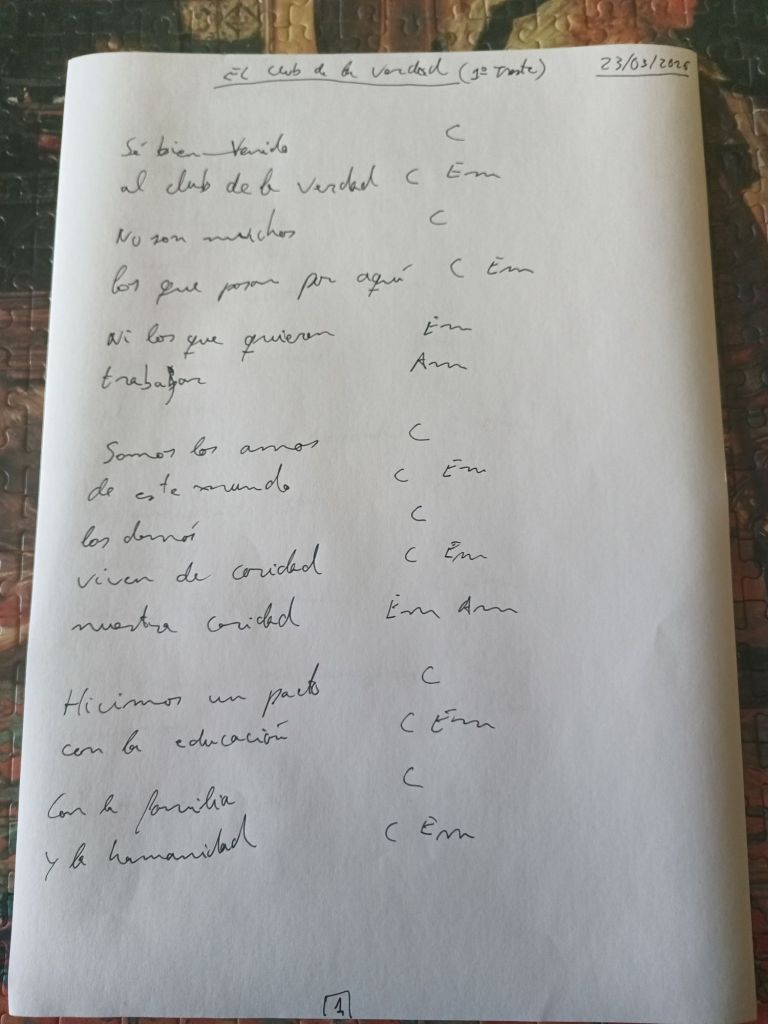 El club de la verdad (1º Traste) 23/03/2025
Sé bien-venido C
al club de la verdad C Em
No son muchos C
los que pasan por aquí C Em
Ni los que quieren Em
trabajar Am
Somos los amos C
de este mundo C Em
los demás C
viven de caridad C Em
nuestra caridad Em Am
Hicimos un pacto C
con la educación C Em
Con la familia C
y la humanidad C Em
1